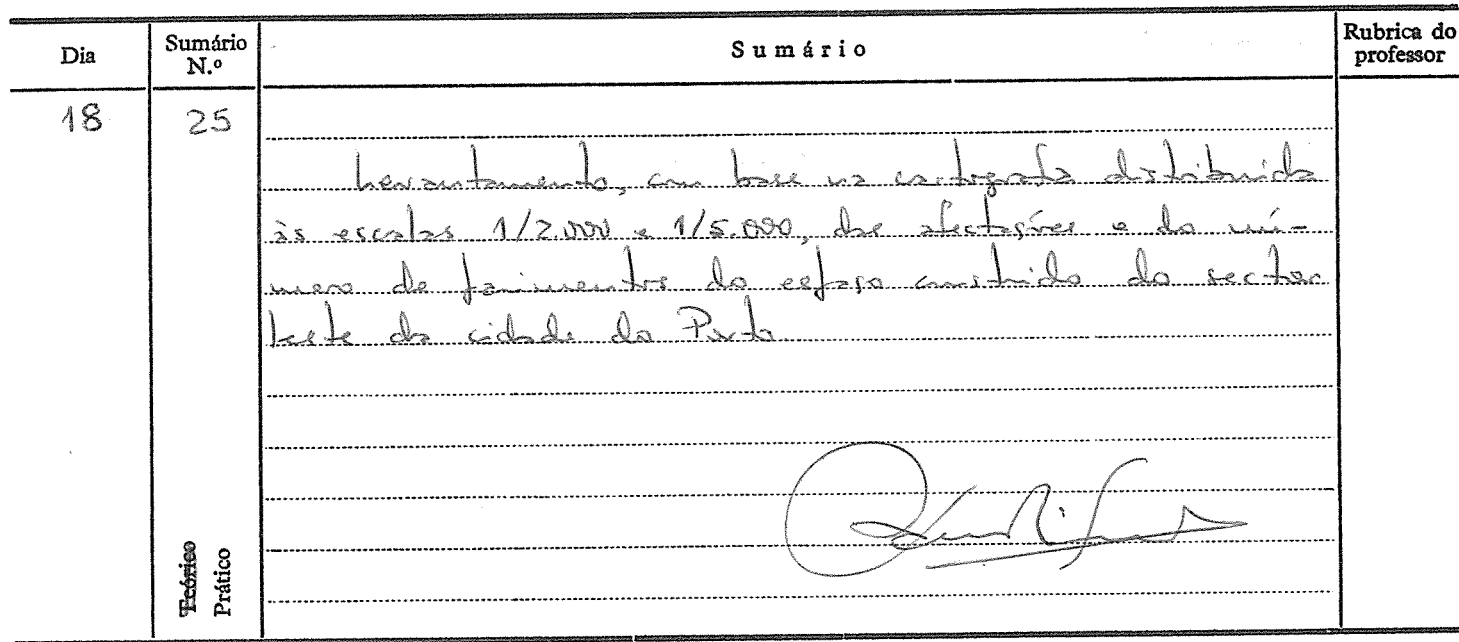 Dia
Sumário N.º
Sumário
Rubrica do professor
18
25
Levantamento, com base na cartografia distribuida
às escalas 1/2.000 e 1/5.000, das afectações e do nú-
mero de pavimentos do espaço construido do sector
leste da cidade do Porto
Teórico
Prático